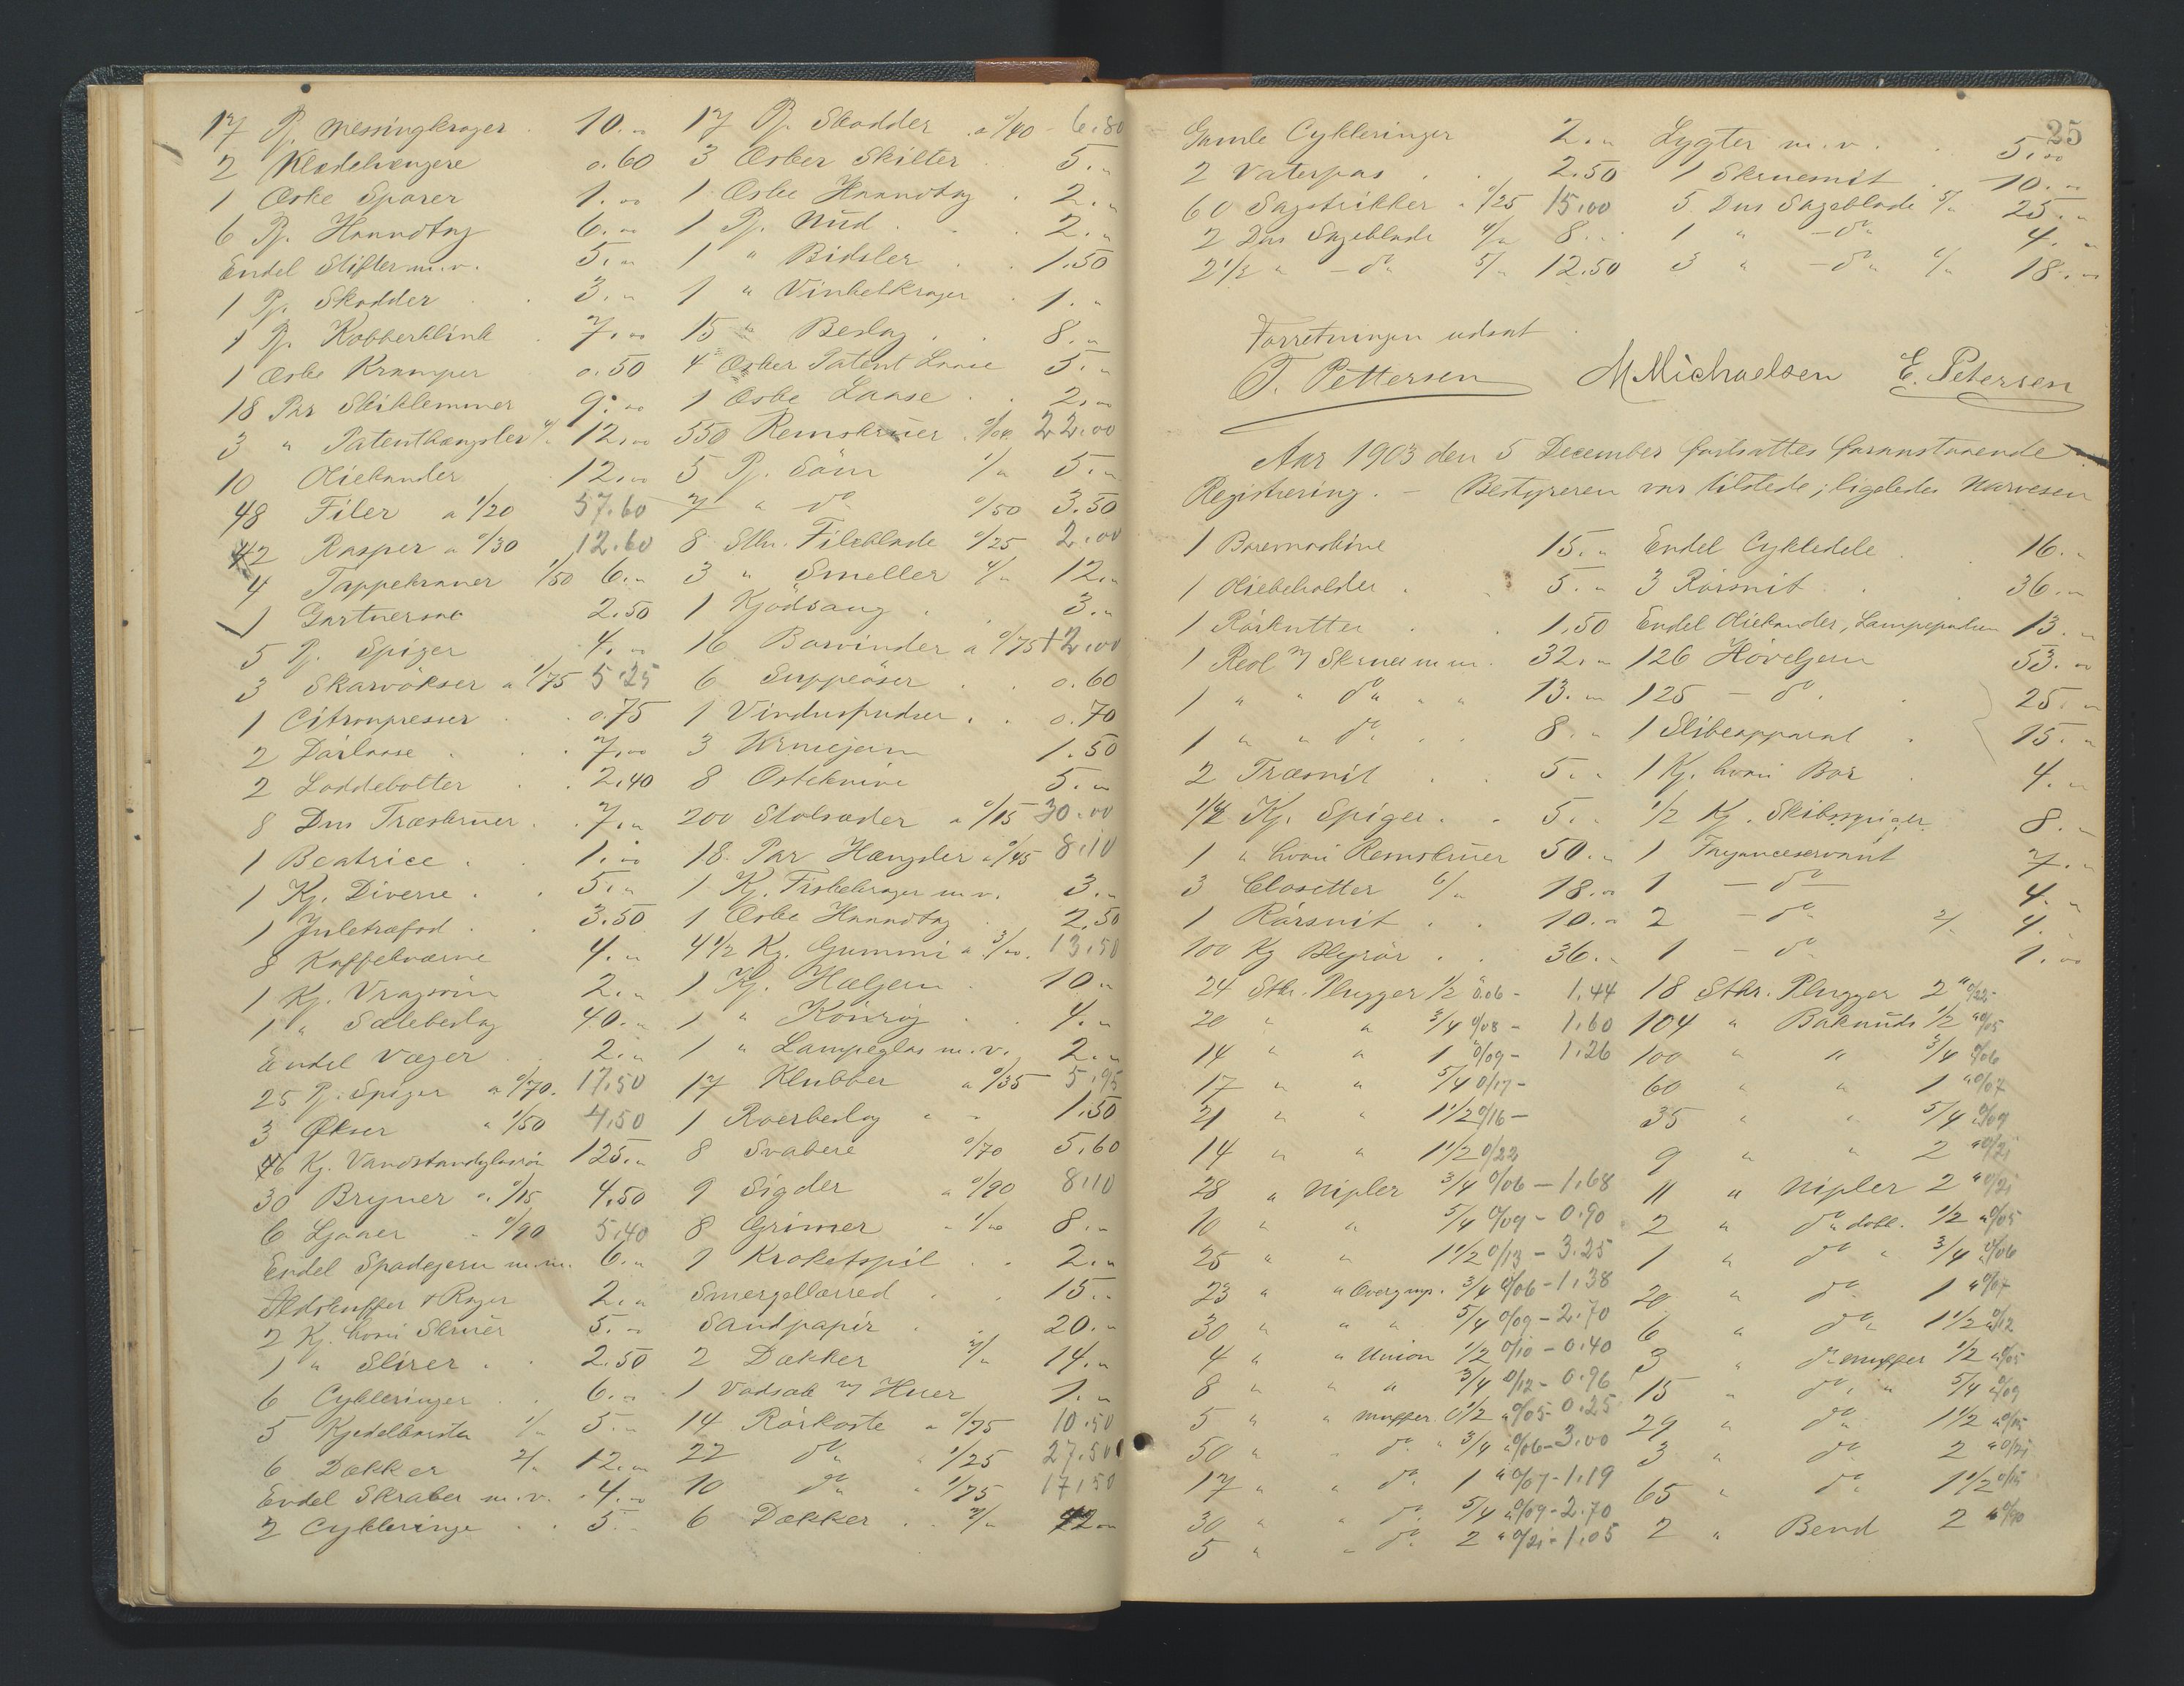 17 Pj. Messingkroger 10.„
2 Klædehængere 0.60
1 Æske Sparer 1.00
6 Pj. Haandtag 6.00
Endel Stifter m.v. 5.„
1 Pj. Skodder 3.„
1 Pj. Kobberklink 7.00
1 Æske Kramper 0.50
18 Par Skiklemmer 9.00
3 „ Patenthængsler 4/„ 12.00
10 Oliekander 12.00
48 Filer a 1/20 57.60
42 Rasper a 0/30 12.60
4 Tappekraner 1/50 6.„
1 Gartnersax 2.50
5 Pj. Spiger 4.00
3 Skarvökser a 1/75 5.25
1 Citronpresser 0.75
2 Dörlaase 7.00
2 Loddebolter 2.40
8 Dus Træskruer 7.„
1 Beatrice 1.00
1 Kj. Diverse 5.„
1 Juletræfod 3.50
8 Kaffekværne 4.„
1 Kj. 2.„
1 „ Sælebeslag 40.„
Endel Væger 2.„
25 Pj. Spiger a 0/70 17.50
3 Økser „ 1/50 4.50
46 Kj. Vandstandsglasrör 125.„
30 Bryner a 0/15 4.50
6 Ljaaer „ 0/90 5.40
Endel Spadejern m.m. 6.„
Ildskuffer & Rager 2.„
2 Kj. hvori Skruer 5.„
1 „ Slirer 2.50
6 Cykleringer 6.„
5 Kjedelbörster 1/„ 5.„
6 Dækker 2/„ 12.„
Endel Skraber m.v. 4.„
2 Cykleringe 5.
17 Pj. Skodder a 0/40 - 6.80
3 Æsker Skilter 5.„
1 Æske Haandtag 2.„
1 Pj. Nud 2.„
1 „ Bidsler 1.50
1 „ Vinkelkroger 1.„
15 „ Beslag 8.„
4 Æsker Patent Laase 5.„
1 Æske Laase 2.„
550 Remskruer 0/04 22.00
5 Pj. Söm 1/„ 5.„
7 „ do 0/50 3.50
8 Stk. Fileblade 0/25 2.00
3 „ Smeller 4/„ 12.„
1 Kjödsaug 3.„
16 Borvinder a 0/75 12.00
6 Suppeöser 0.60
1 Vinduspudser 0.70
3 1.50
8 Osteknive 5.„
200 Stolsæder a 0/15 30.00
18 Par Hængsler a 0/45 8.10
1 Kj. Fiskekroger m.v. 3.„
1 Æske Haandtag 2.50
4 1/2 Kg. Gummi a 3/00 13.50
1 Kj. Hæljern 10.„
1 „ Könrög 4.„
1 „ Lampeglas m.v. 2.„
17 Klubber a 0/35 5.95
1 Roerbeslag 1.50
8 Svabere 0/70 5.60
9 Sigder a 0/90 8.10
8 Grimer „ 1/00 8.„
1 Kroketspil 2.„
Smergellærred 15.„
Sandpapir 20.„
2 Dækker 7/„ 14.„
1 Vadsæk m/ Huer 1.„
14 Rörkoste a 0/75 10.50
22 do „ 1/25 27.50
10 do „ 1/75 17.50
6 Dækker 7/„ 42.„
25
Gamle Cykleringer 2.„
2 Vaterpas 2.50
60 Sagstrikker „ 0/25 15.00
2 Dus Sageblade 4/„ 8.„
2 1/2 „ - do „ 5/„ 12.50
Lygter m.v. 5.00
1 Skruesnit 10.„
5 Dus Sageblade 5/„ 25.„
1 „ - do „ 4.„
3 „ - do „ 6/„ 18.„
Forretningen udsat.
T. Pettersen M Michaelsen E. Petersen
Aar 1903 den 5 December fortsattes foranstaaende
Registrering. - Bestyreren var tilstede; ligeledes Narvesen
1 Boremaskine 15.„
1 Oliebeholder 5.„
1 Rörkutter 1.50
1 Reol m/ Skruer m.m. 32.„
1 „ „ do „ 13.„
1 „ „ do 8.„
2 Træsnit 5.„
1/4 Kj. Spiger 5.„
1 „ hvori Remskruer 50.„
3 Closetter 6/„ 18.„
1 Rörsnit 10.„
100 Kg Blyrör 36.„
Endel Cykledele 16.„
3 Rörsnit 36.„
Endel Oliekander, Lampeputer 13.„
126 Höveljern 53.„
125 - do 25.„
1 Slibeapparat 15.„
1 Kj. hvori Bor 4.„
1/2 Kj. Skibsspiger 8.„
1 Fayanceservant 7.„
1 - do - 4.„
2 - do „ 2/ 4.„
1 - do „ 1.00
24 Stk. Plugger 1/2 a 0.06 - 1.44
20 „ „ 3/4 0/08 - 1.60
14 „ „ 1 0/09 - 1.26
17 „ „ 5/4 0/17 -
21 „ „ 1 1/2 0/16 -
14 „ „ 1 1/2 0/22
28 „ Nipler 3/4 0/06 - 1.68
10 „ „ 5/4 0/09 - 0.90
25 „ „ 1 1/2 0/13 - 3.25
23 „ „ Overg.np. 3/4 0/06 - 1.38
30 „ „ „ 5/4 0/09 - 2.70
4 „ „ Union 1/2 0/10 - 0.40
8 „ „ „ 3/4 0/12 - 0.96
5 „ „ Muffer 1/2 a 0/05 - 0.25
50 „ „ do „ 3/4 a 0/06 - 3.00
17 „ „ do 1 a 0/07 - 1.19
30 „ „ do 5/4 a 0/09 - 2.70
5 „ „ do 2 „ 0/21 - 1.05
18 Stk. Plugger 2 „ 0/22
104 „ Baknuds 1/2 a 0/05
100 „ „ 3/4 0/06
60 „ „ 1 a 0/07
35 „ „ 5/4 0/09
9 „ „ 2 a 0/21
11 „ Nipler 2 a 0/21
2 „ do dobb. 1/2 a 0/05
1 „ do „ 3/4 0/06
20 „ do 1 a 0/07
6 „ do 1 1/2 a 0/12
3 „ do muffer 1/2 a 0/05
15 „ do „ 5/4 a 0/09
29 „ do 1 1/2 a 0/15
3 „ do 2 a 0/21
65 „ do 1 1/2 0/15
2 „ Bend 2 a 0/90